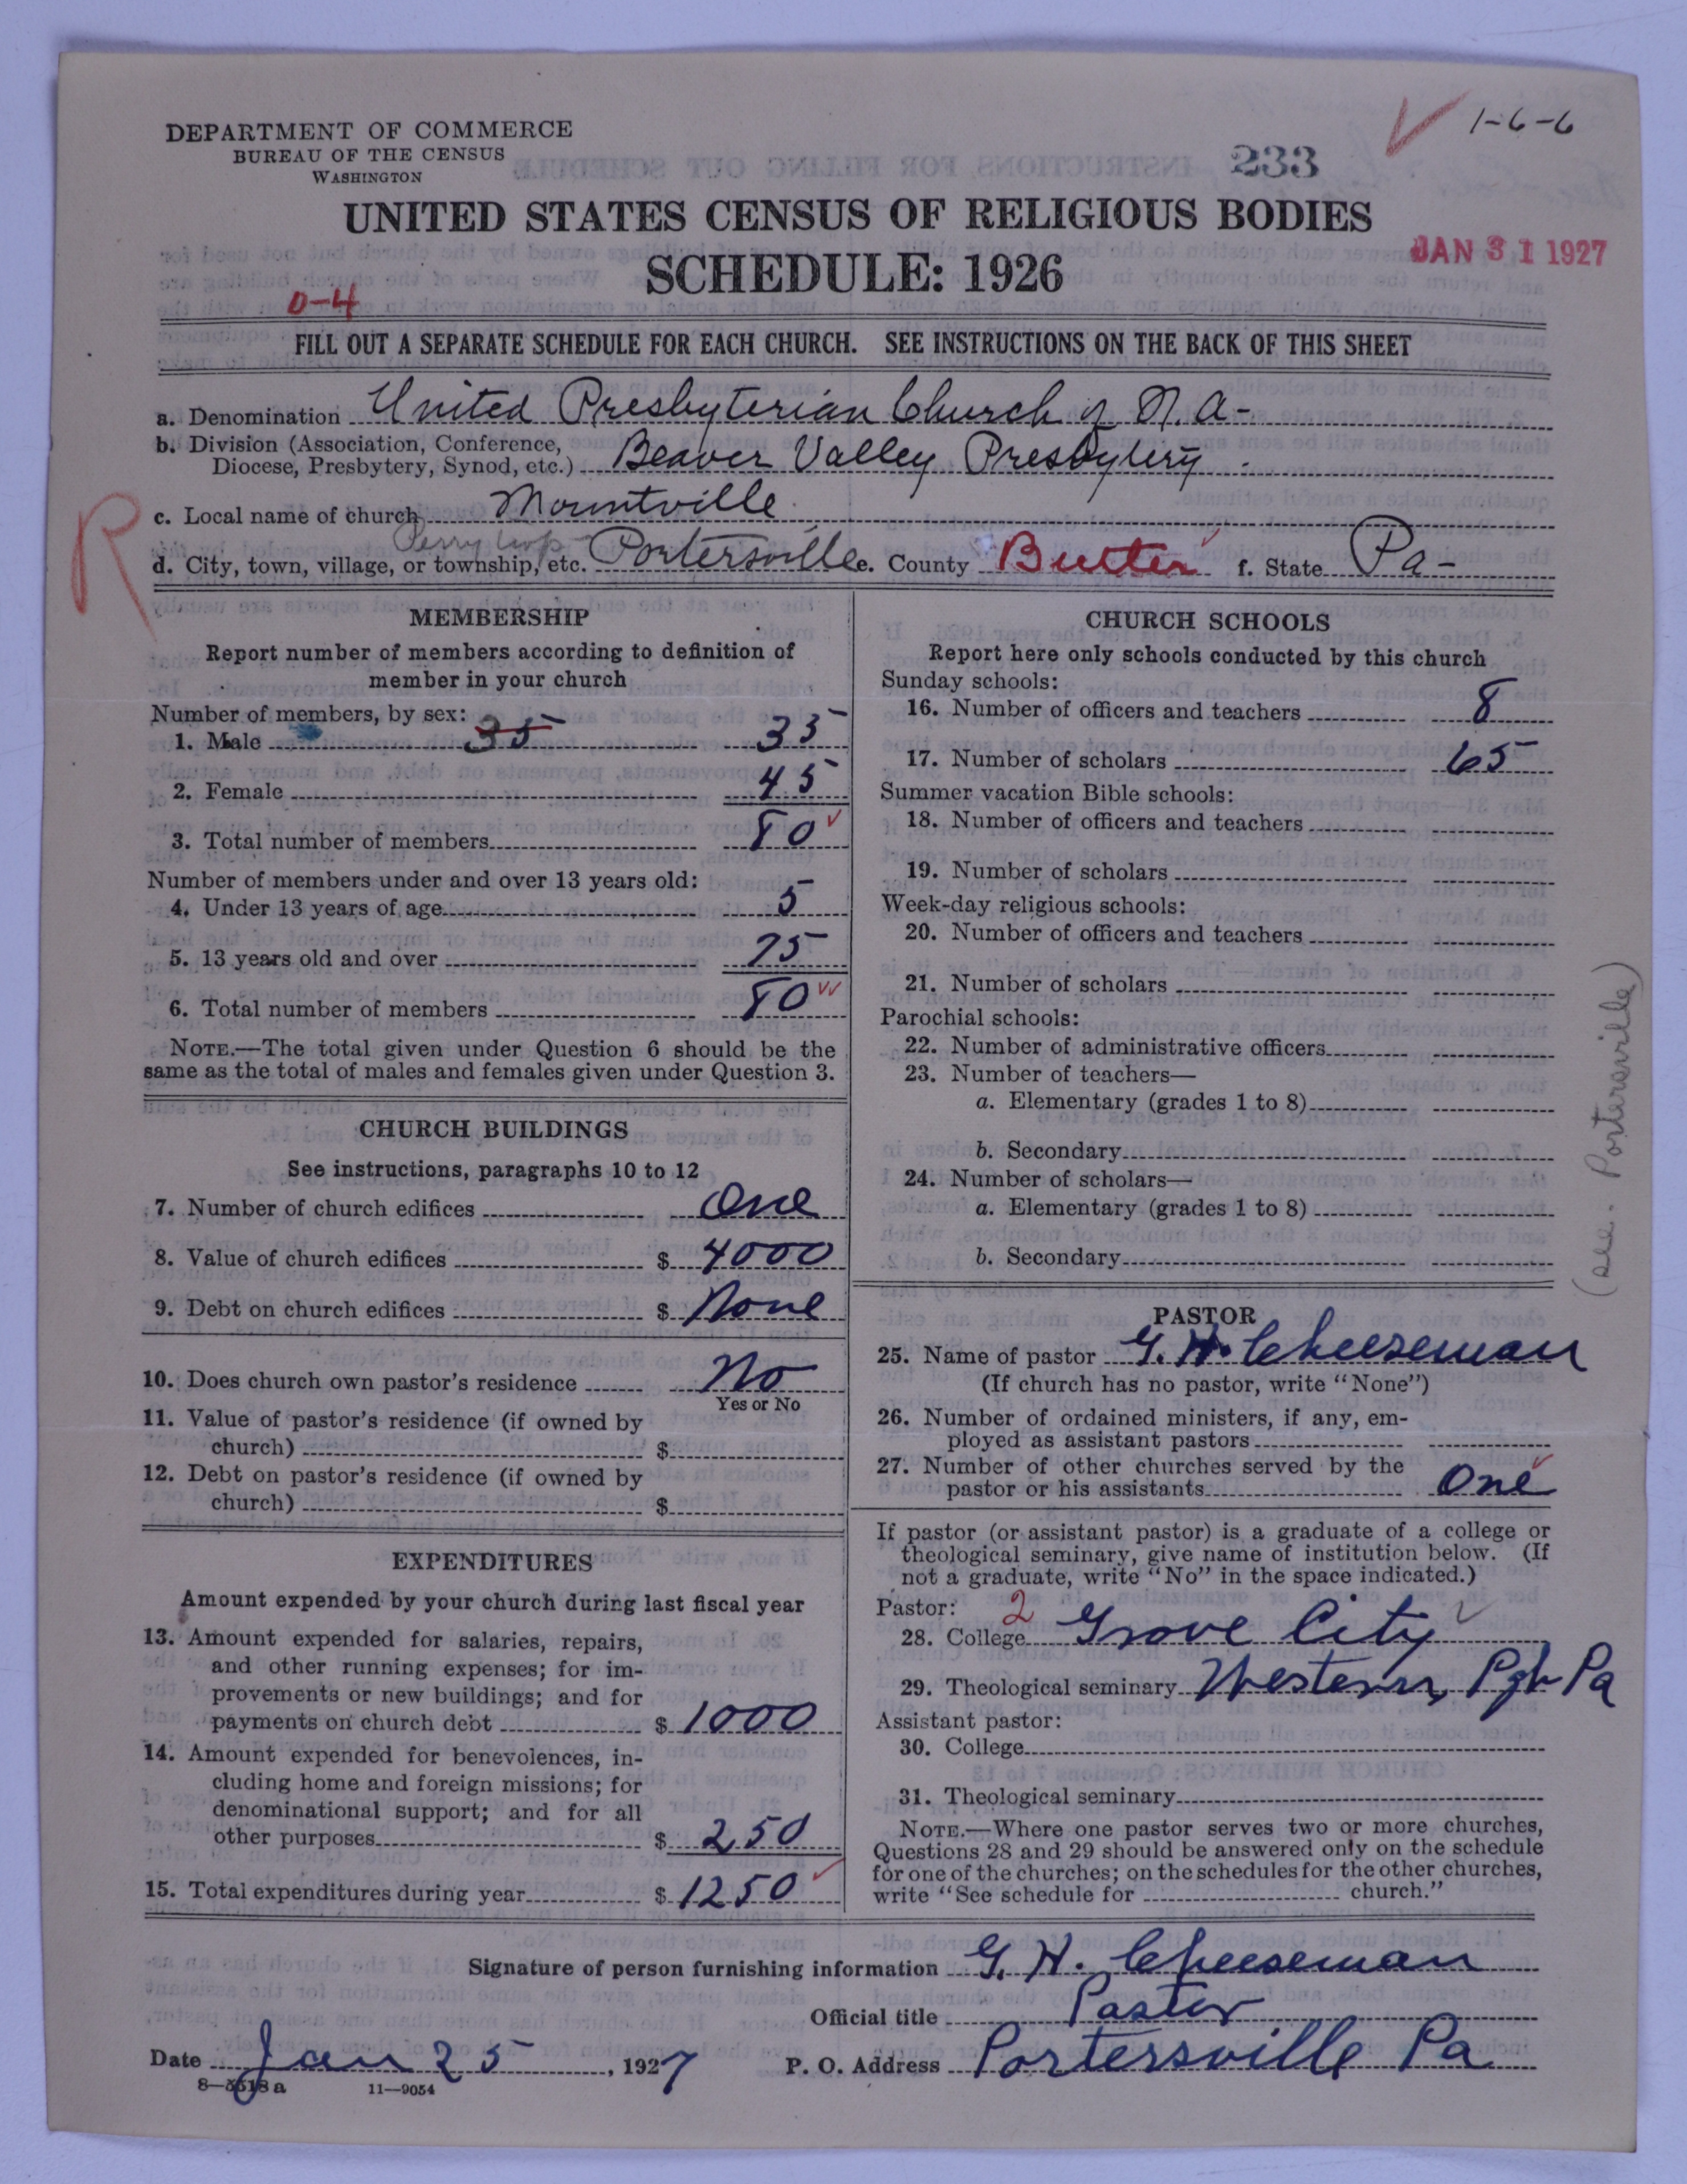 DEPARTMENT OF COMMERCE
BUREAU OF THE CENSUS
WASHINGTON
1-6-6
233
UNITED STATES CENSUS OF RELIGIOUS BODIES
JAN 31 1927
SCHEDULE: 1926
0-4
FILL OUT A SEPARATE SCHEDULE FOR EACH CHURCH. SEE INSTRUCTIONS ON THE BACK OF THIS SHEET
a. Denomination United Presbyterian Church of N.A-
b. Division (Association, Conference,
Diocese, Presbytery, Synod, etc.) Beaver Valley Presbytery
R
c. Local name of church Mountville
Perry twp
d. City, town, village, or township, etc. Portersville e. County Butler f. State Pa-
MEMBERSHIP
Report number of members according to definition of
member in your church
Number of members, by sex:
1. Male 35 35
2. Female 45
3. Total number of members 80
Number of members under and over 13 years old:
4. Under 13 years of age 5
5. 13 years old and over 75
6. Total number of members 80
NOTE.—The total given under Question 6 should be the
same as the total of males and females given under Question 3.
CHURCH BUILDINGS
See instructions, paragraphs 10 to 12
7. Number of church edifices One
8. Value of church edifices $ 4000
9. Debt on church edifices $ None
10. Does church own pastor's residence No
Yes or No
11. Value of pastor's residence (if owned by
church) $
12. Debt on pastor's residence (if owned by
church) $
EXPENDITURES
Amount expended by your church during last fiscal year
13. Amount expended for salaries, repairs,
and other running expenses; for im-
provements or new buildings; and for
payments on church debt $ 1000
14. Amount expended for benevolences, in-
cluding home and foreign missions; for
denominational support; and for all
other purposes $ 250
15. Total expenditures during year $ 1250
CHURCH SCHOOLS
Report here only schools conducted by this church
Sunday schools:
16. Number of officers and teachers 8
17. Number of scholars 65
Summer vacation Bible schools:
18. Number of officers and teachers
19. Number of scholars
Week-day religious schools:
20. Number of officers and teachers
21. Number of scholars
Parochial schools:
22. Number of administrative officers
23. Number of teachers—
a. Elementary (grades 1 to 8)
b. Secondary
24. Number of scholars—
a. Elementary (grades 1 to 8)
b. Secondary
(see. Portersville)
PASTOR
25. Name of pastor G. H. Cheeseman
(If church has no pastor, write "None")
26. Number of ordained ministers, if any, em-
ployed as assistant pastors
27. Number of other churches served by the
pastor or his assistants One
If pastor (or assistant pastor) is a graduate of a college or
theological seminary, give name of institution below. (If
not a graduate, write "No" in the space indicated.)
Pastor: 2
28. College Grove City
29. Theological seminary Western, Pgh Pa
Assistant pastor:
30. College
31. Theological seminary
NOTE.—Where one pastor serves two or more churches,
Questions 28 and 29 should be answered only on the schedule
for one of the churches; on the schedules for the other churches,
write "See schedule for church."
Signature of person furnishing information G. H. Cheeseman
Official title Pastor
Date Jan 25, 1927 P. O. Address Portersville Pa
8—5518 a 11—9054